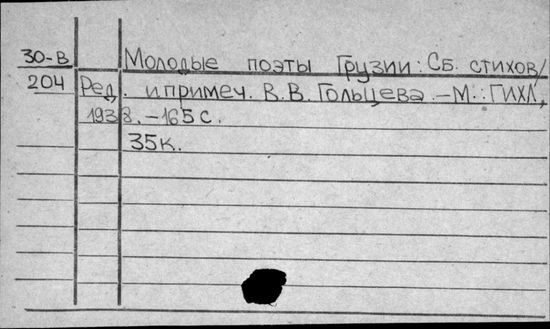 30-В Молодые поэты Грузии: Сб. стихов/
204 Ред. и примеч. В.В. Гольцева.-М.: ГИХЛ,
1938.-165 с.
35к.